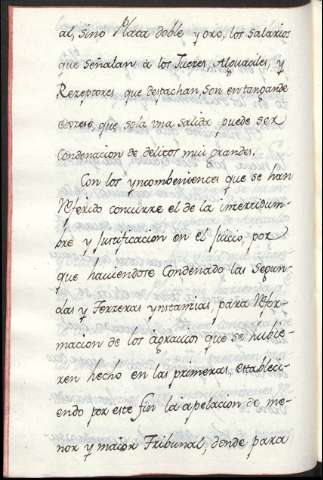 al, sino Plata doble y oro, los salarios
que señalan à los Jueces, Alguaciles, y
Rezeptores que despachan, son en tan grande
exceso, que sola vna salida puede ser
Condenacion de delitos mui grandes.
Con los ynconbenientes que se han
referido concurre el de la incertidum-
bre y Justificacion en el Juicio, por
que haviendose Condenado las segun-
das y Terzeras ynstanzias, para refor-
macion de los agravios que se hubie-
ren hecho en las primeras, estableci-
endo por este fin la apelacion de me-
nor y maior Tribunal, donde para